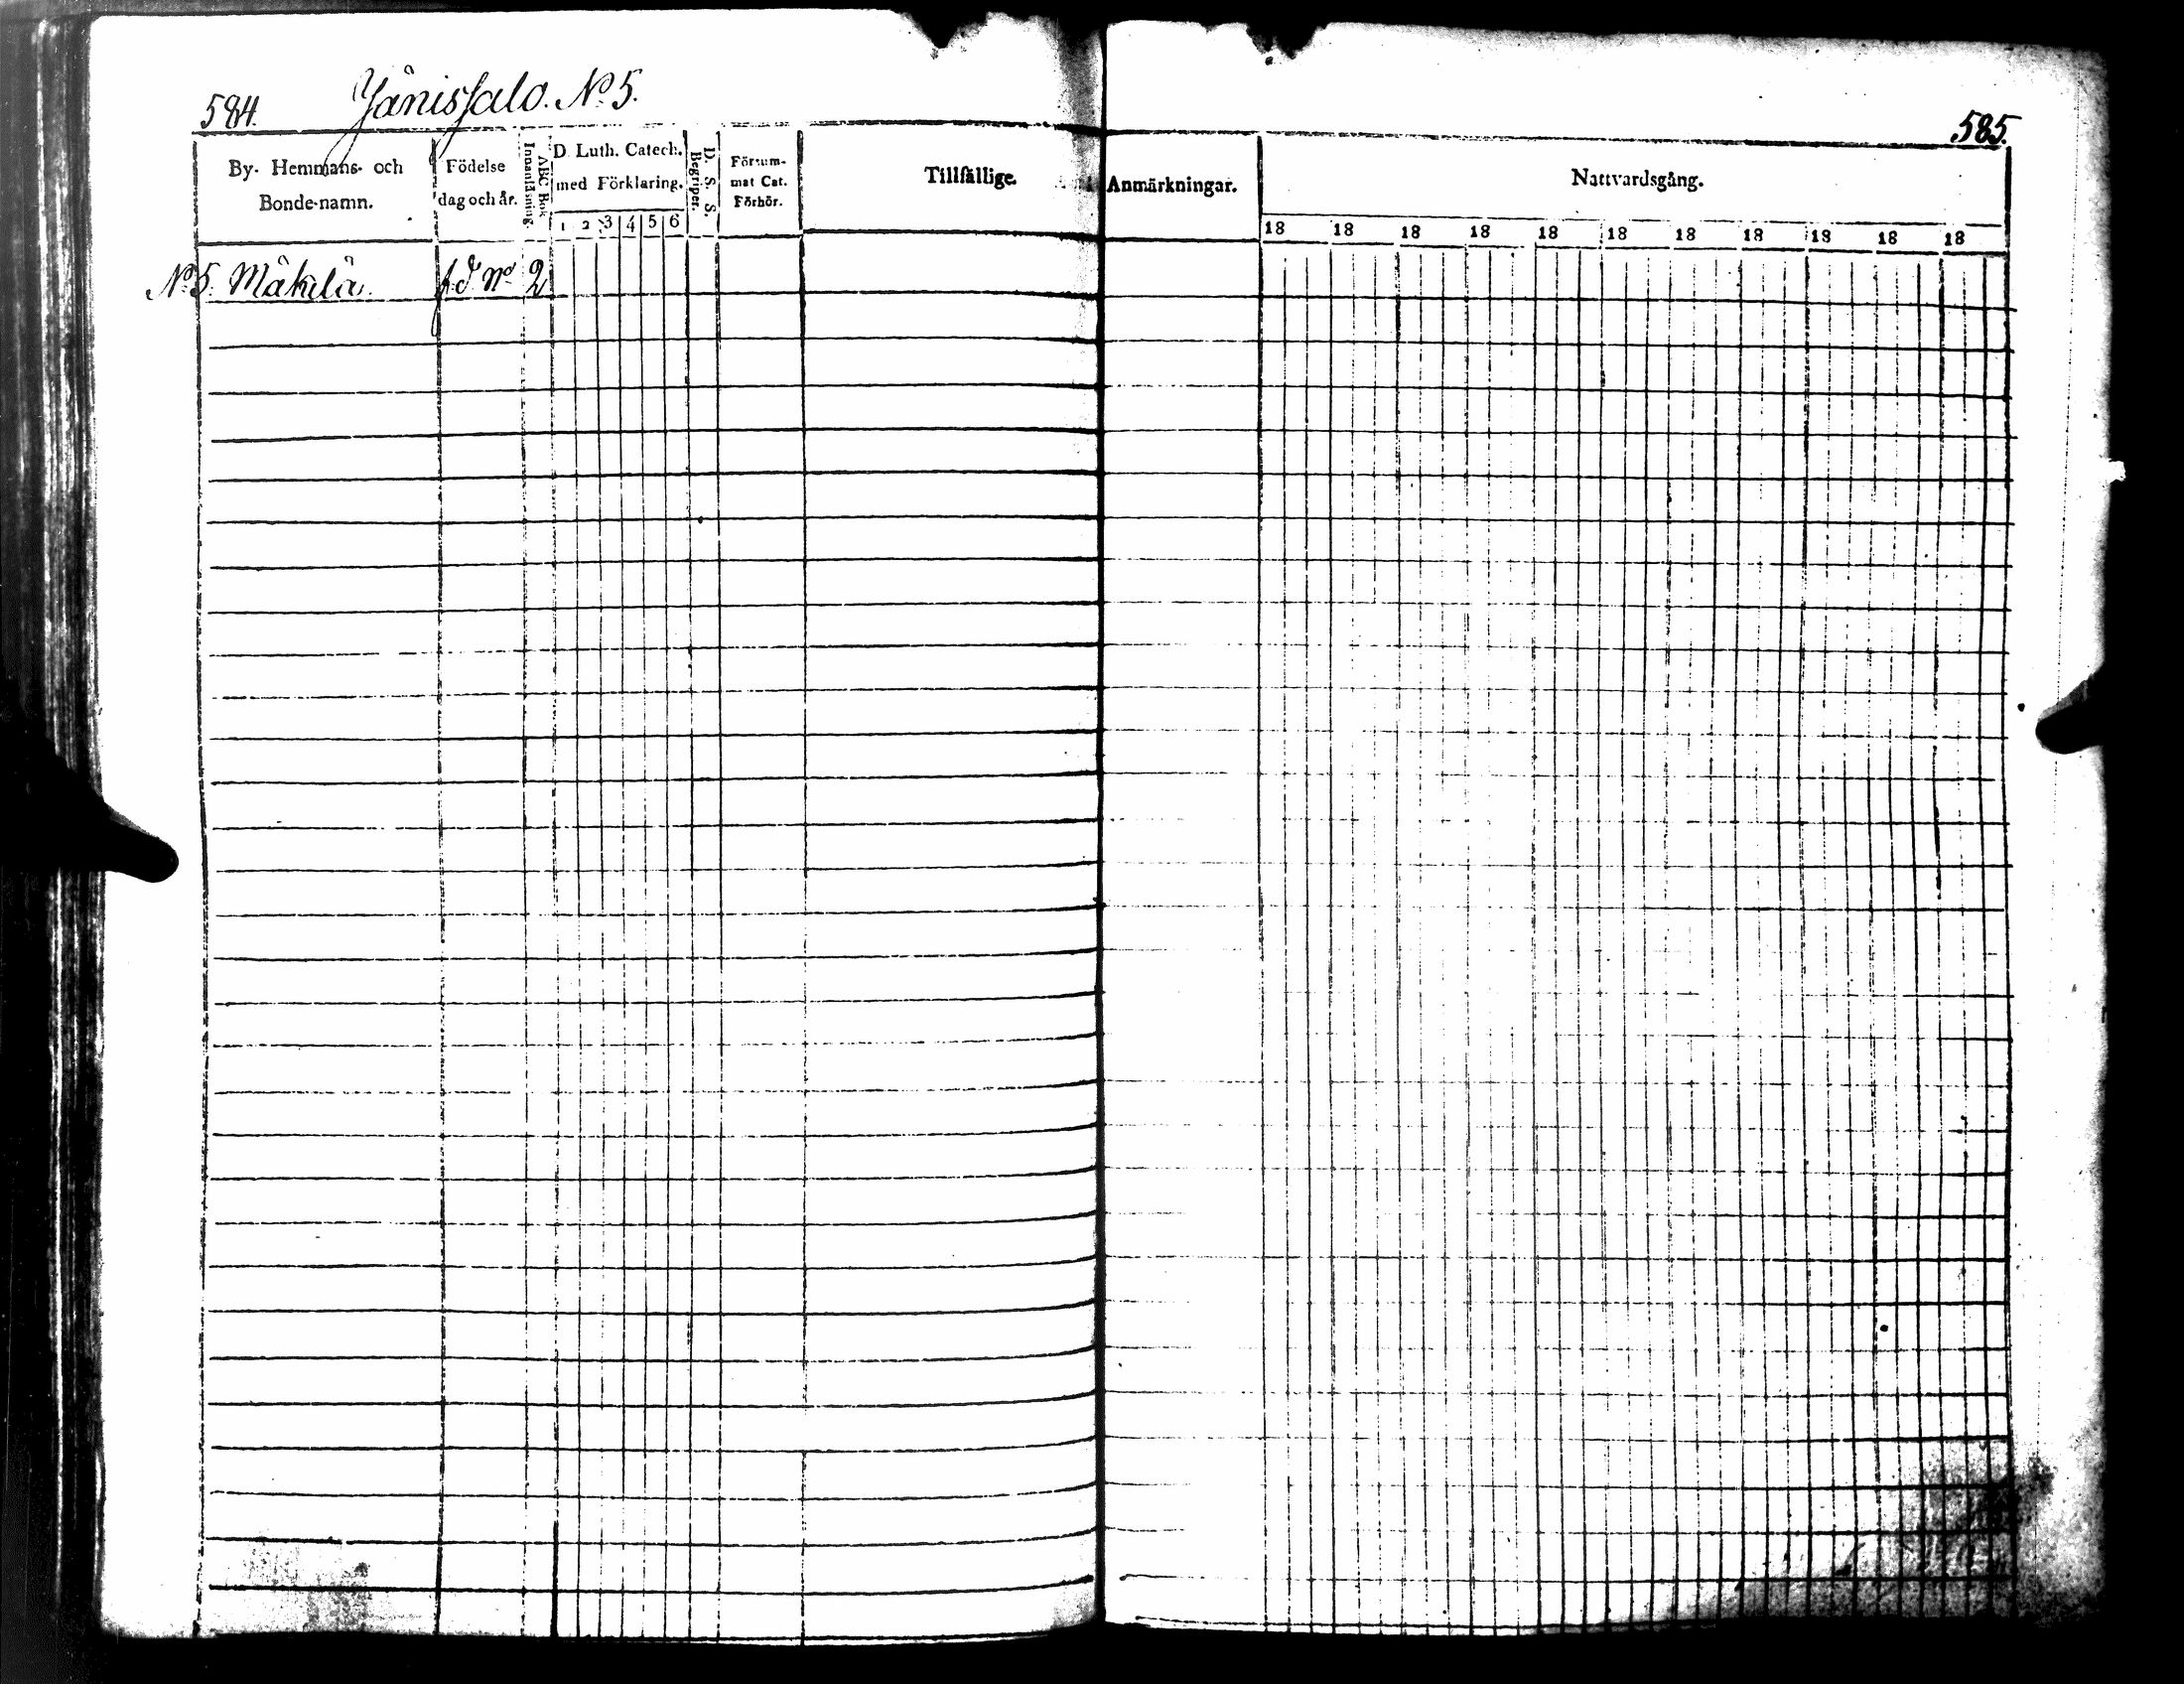 584. Jänissalo. No 5.
585.
By- Hemmans- och
Bonde-namn.
Födelse
dag och år.
ABC Bok
Innanläsning.
D. Luth. Catech.
med Förklaring.
1 2 3 4 5 6
D. S. S.
Begriper.
Försum-
mat Cat.
Förhör.
Tillfällige
Anmärkningar.
Nattvardsgång.
18 18 18 18 18 18 18 18 18 18 18
No 5. Mäkelä. f.d. No 2